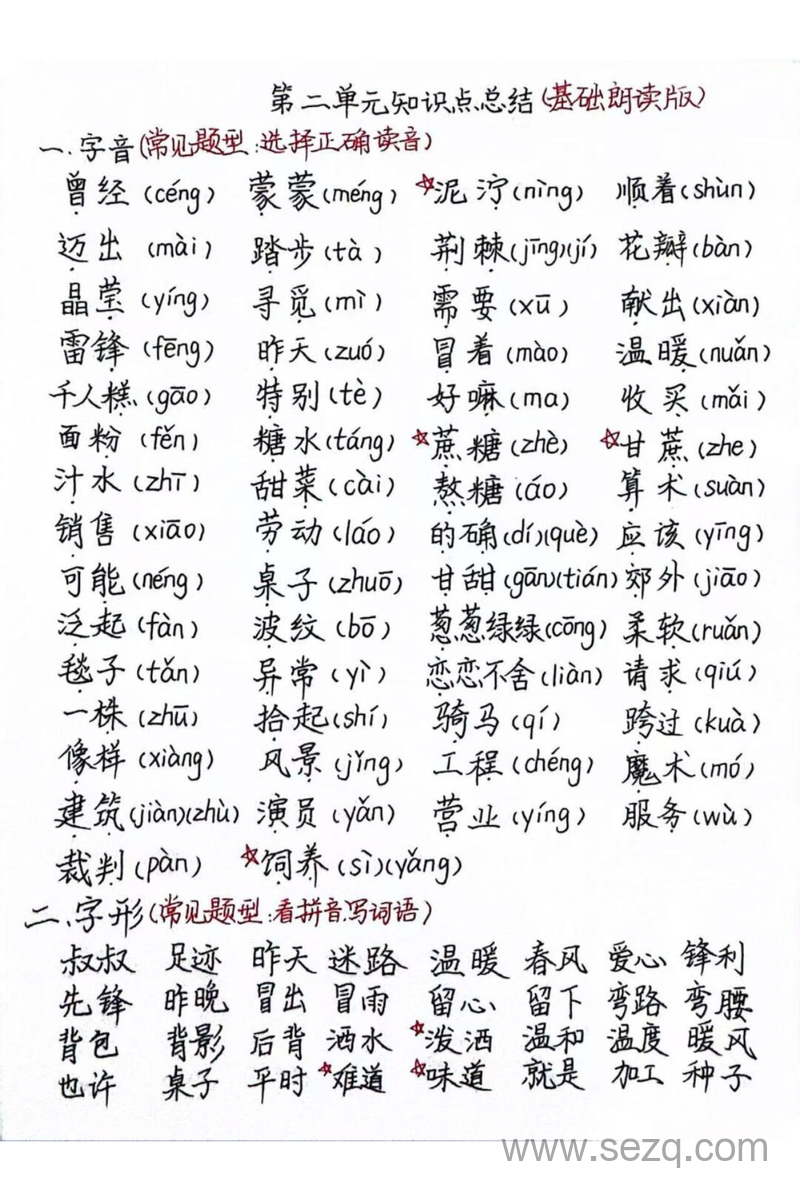 第二单元知识点总结(基础朗读版)
一.字音(常见题型:选择正确读音)
曾经(céng) 蒙蒙(méng) ☆泥泞(nìng) 顺着(shùn)
迈出(mài) 踏步(tà) 荆棘(jīng)(jí) 花瓣(bàn)
晶莹(yíng) 寻觅(mì) 需要(xū) 献出(xiàn)
雷锋(fēng) 昨天(zuó) 冒着(mào) 温暖(nuǎn)
千人糕(gāo) 特别(tè) 好嘛(ma) 收买(mǎi)
面粉(fěn) 糖水(táng) ☆蔗糖(zhè) ☆甘蔗(zhe)
汁水(zhī) 甜菜(cài) 熬糖(áo) 算术(suàn)
销售(xiāo) 劳动(láo) 的确(dí)(què) 应该(yīng)
可能(néng) 桌子(zhuō) 甘甜(gān)(tián) 郊外(jiāo)
泛起(fàn) 波纹(bō) 葱葱绿绿(cōng) 柔软(ruǎn)
毯子(tǎn) 异常(yì) 恋恋不舍(liàn) 请求(qiú)
一株(zhū) 拾起(shí) 骑马(qí) 跨过(kuà)
像样(xiàng) 风景(jǐng) 工程(chéng) 魔术(mó)
建筑(jiàn)(zhù) 演员(yǎn) 营业(yíng) 服务(wù)
裁判(pàn) ☆饲养(sì)(yǎng)
二.字形(常见题型:看拼音写词语)
叔叔 足迹 昨天 迷路 温暖 春风 爱心 锋利
先锋 昨晚 冒出 冒雨 留心 留下 弯路 弯腰
背包 背影 后背 洒水 ☆泼洒 温和 温度 暖风
也许 桌子 平时 ☆难道 ☆味道 就是 加工 种子
www.sezq.com